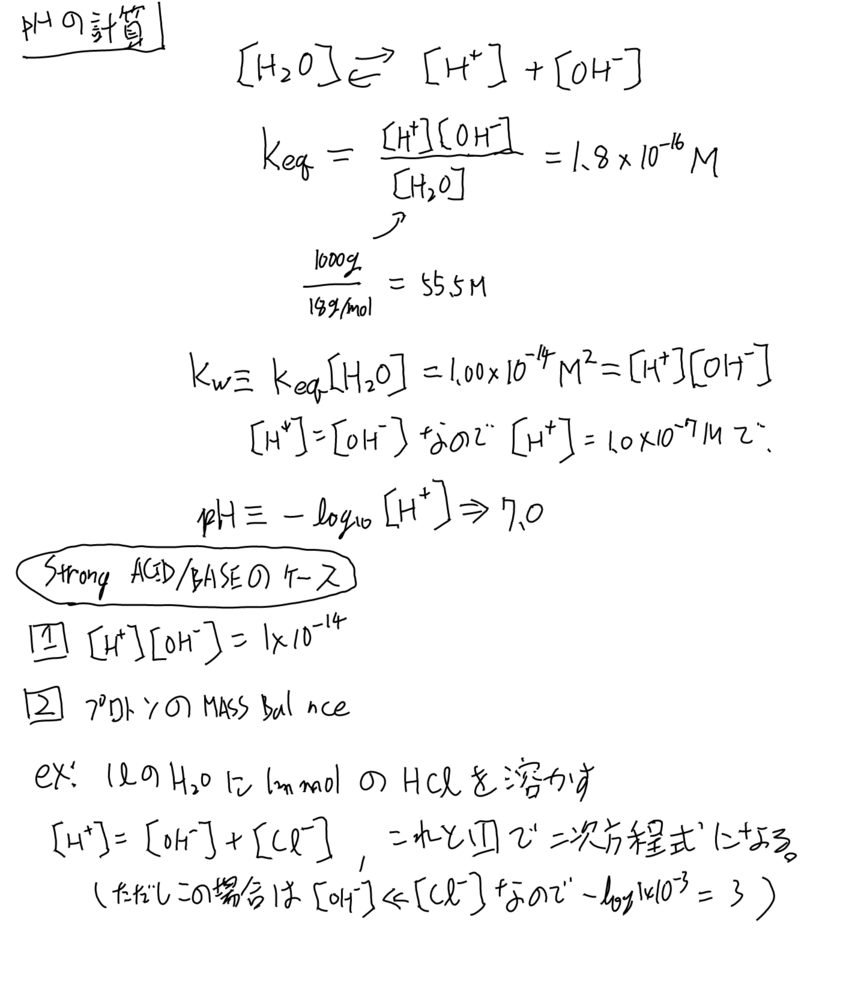 pHの計算
[H₂O] ⇄ [H⁺] + [OH⁻]
Keq = [H⁺][OH⁻] / [H₂O] = 1.8 × 10⁻¹⁶ M
1000g / 18g/mol = 55.5M
Kw ≡ Keq[H₂O] = 1.00×10⁻¹⁴ M² = [H⁺][OH⁻]
[H⁺]=[OH⁻] なので [H⁺] = 1.0×10⁻⁷ M で.
pH ≡ − log₁₀ [H⁺] ⇒ 7.0
Strong ACID/BASEのケース
1 [H⁺][OH⁻] = 1×10⁻¹⁴
2 プロトンの MASS Bal nce
ex: 1ℓの H₂O に 1m mol の HCl を溶かす
[H⁺] = [OH⁻] + [Cl⁻] , これと1で二次方程式になる。
(ただしこの場合は [OH⁻] ≪ [Cl⁻] なので −log1×10⁻³ = 3 )